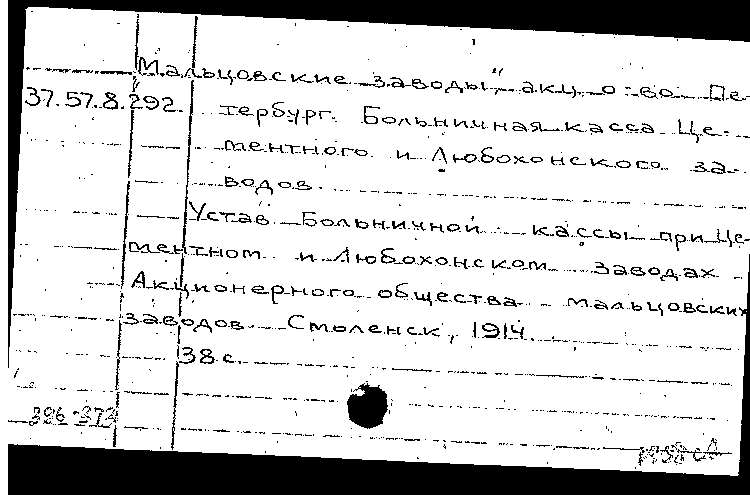 Мальцовские заводы", акц. о-во. Пе-
37.57.8.292. тербург. Больничная касса Це-
ментного и Любохонского за-
водов.
Устав Больничной кассы при Це-
ментном и Любохонском заводах
Акционерного общества мальцовских
заводов. Смоленск, 1914.
38 с.
386-373